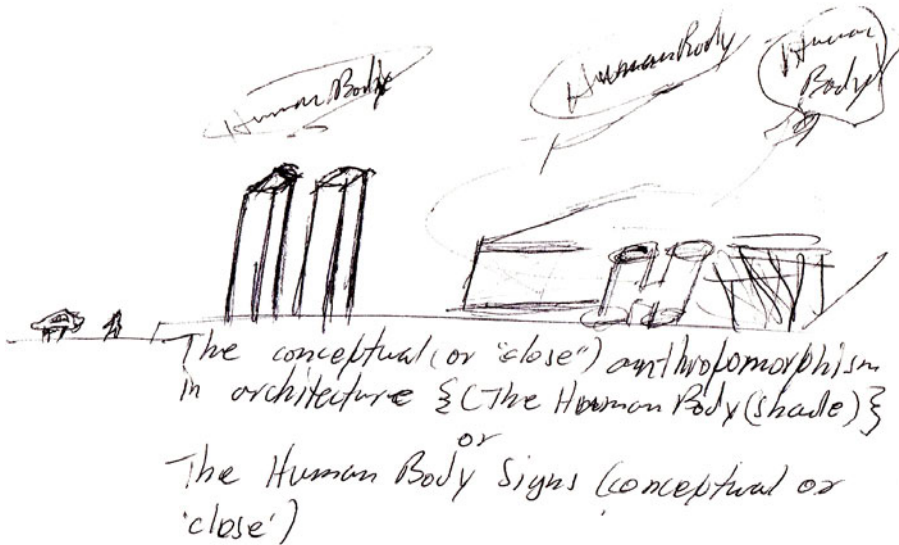 Human Body
Human Body
Human
Body
The conceptual (or "close") anthropomorphism
in architecture {(The Human Body (shade)}
or
The Human Body Signs (conceptual or
'close')